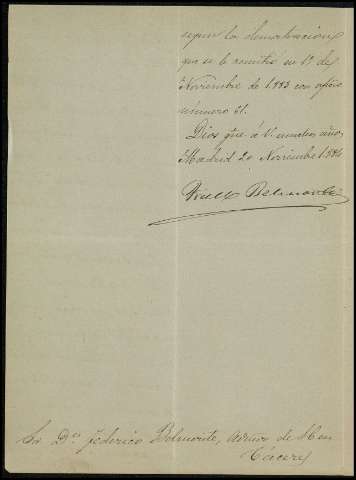 segun la demarcacion
que se le remitió en 17 de
Noviembre de 1883 con oficio
número 61.
Dios gue á V. muchos años,
Madrid 20 Noviembre 1884
Belmonte
Sr Dn Federico Belmonte, de
Cáceres